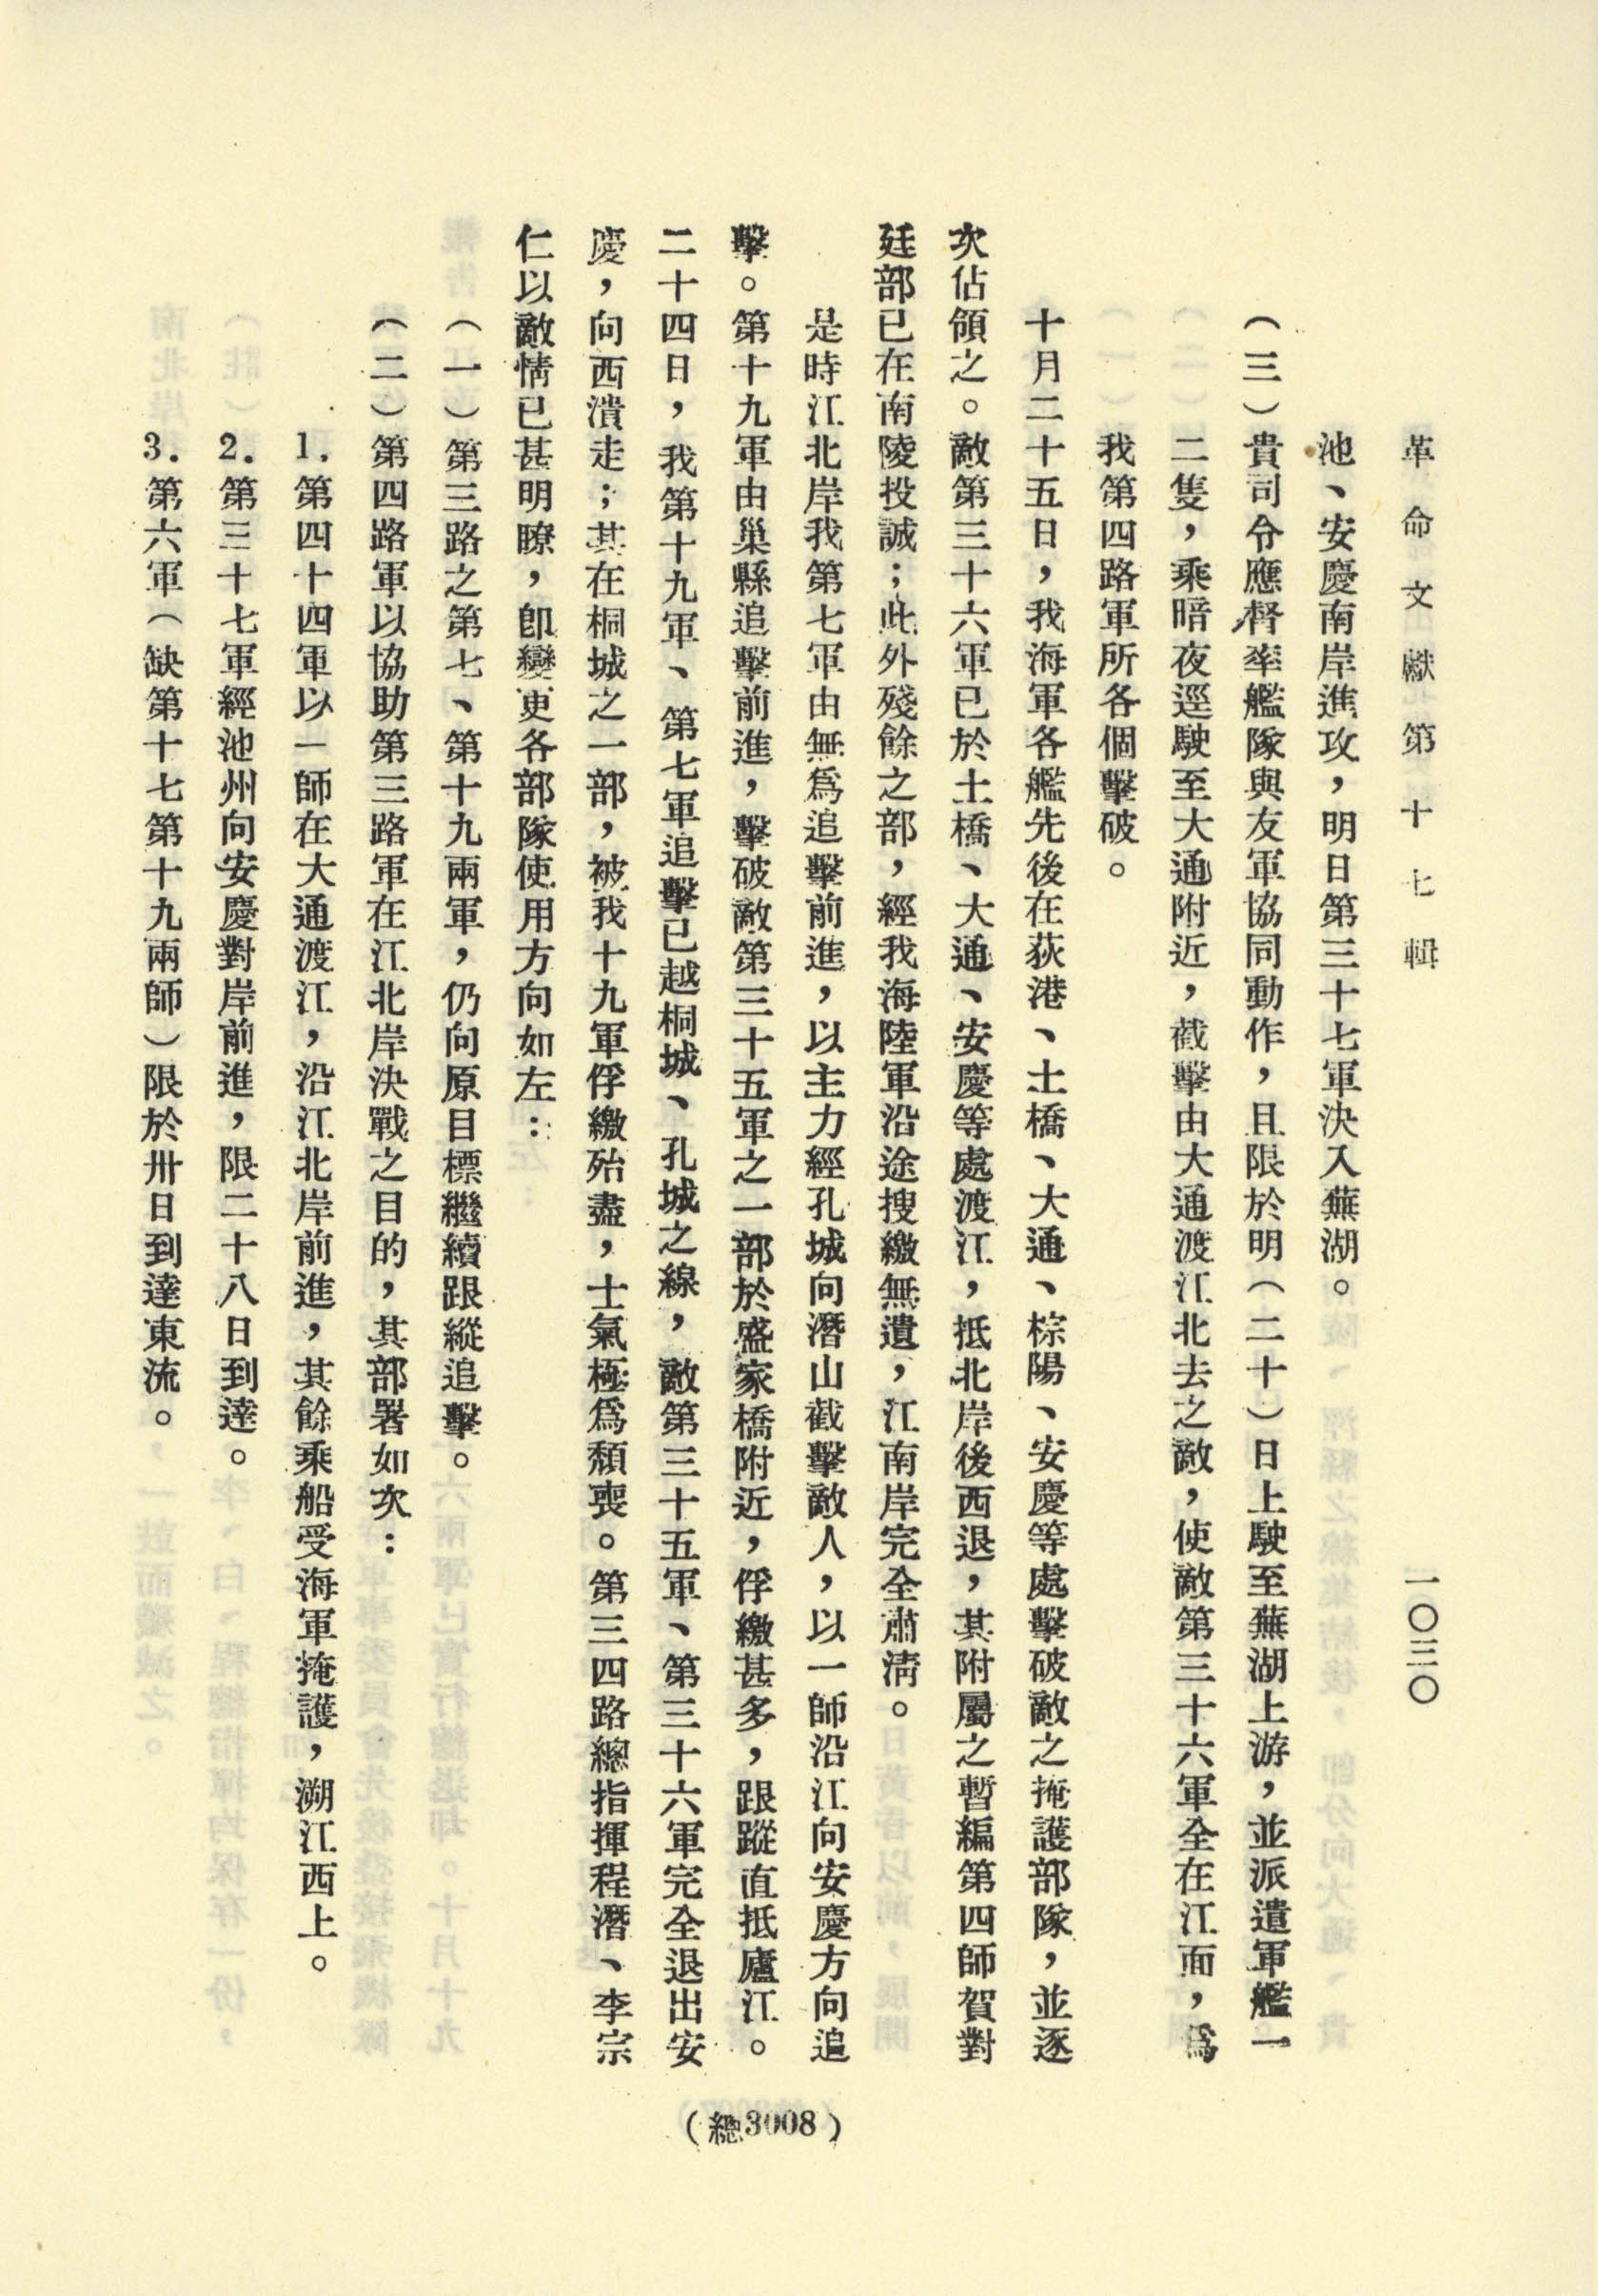 革命文獻第十七輯　一〇三〇
池、安慶南岸進攻，明日第三十七軍決入蕪湖。
（三）貴司令應督率艦隊與友軍協同動作，且限於明（二十）日上駛至蕪湖上游，並派遣軍艦一
二隻，乘暗夜逕駛至大通附近，截擊由大通渡江北去之敵，使敵第三十六軍全在江面，爲
我第四路軍所各個擊破。
十月二十五日，我海軍各艦先後在荻港、土橋、大通、棕陽、安慶等處擊破敵之掩護部隊，並逐
次佔領之。敵第三十六軍已於土橋、大通、安慶等處渡江，抵北岸後西退，其附屬之暫編第四師賀對
廷部已在南陵投誠；此外殘餘之部，經我海陸軍沿途搜繳無遺，江南岸完全肅淸。
是時江北岸我第七軍由無爲追擊前進，以主力經孔城向潛山截擊敵人，以一師沿江向安慶方向追
擊。第十九軍由巢縣追擊前進，擊破敵第三十五軍之一部於盛家橋附近，俘繳甚多，跟蹤直抵廬江。
二十四日，我第十九軍、第七軍追擊已越桐城、孔城之線，敵第三十五軍、第三十六軍完全退出安
慶，向西潰走；其在桐城之一部，被我十九軍俘繳殆盡，士氣極爲頹喪。第三四路總指揮程潛、李宗
仁以敵情已甚明瞭，卽變更各部隊使用方向如左：
（一）第三路之第七、第十九兩軍，仍向原目標繼續跟縱追擊。
（二）第四路軍以協助第三路軍在江北岸決戰之目的，其部署如次：
1.第四十四軍以一師在大通渡江，沿江北岸前進，其餘乘船受海軍掩護，溯江西上。
2.第三十七軍經池州向安慶對岸前進，限二十八日到達。
3.第六軍（缺第十七第十九兩師）限於卅日到達東流。
（總3008）